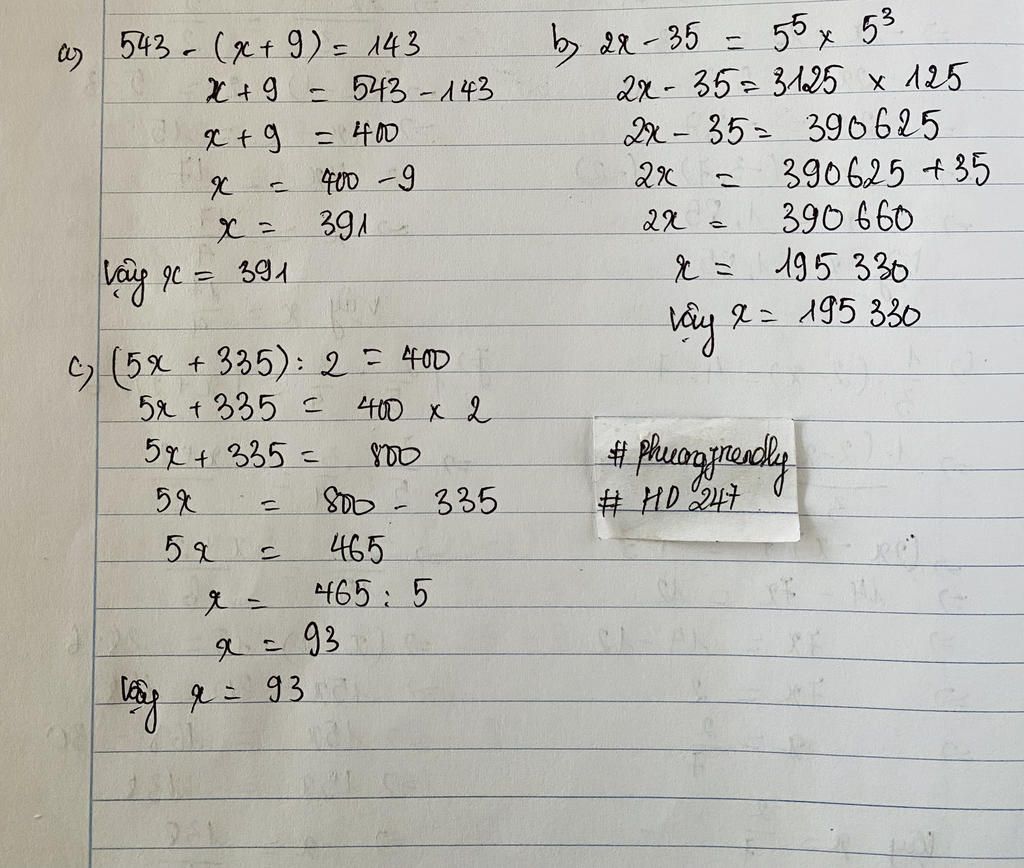 a) 543 - (x + 9) = 143
x + 9 = 543 - 143
x + 9 = 400
x = 400 - 9
x = 391
Vậy x = 391
b) 2x - 35 = 5⁵ × 5³
2x - 35 = 3125 × 125
2x - 35 = 390625
2x = 390625 + 35
2x = 390 660
x = 195 330
Vậy x = 195 330
c) (5x + 335) : 2 = 400
5x + 335 = 400 × 2
5x + 335 = 800
5x = 800 - 335
5x = 465
x = 465 : 5
x = 93
Vậy x = 93
# phuongfriendly
# HD 247